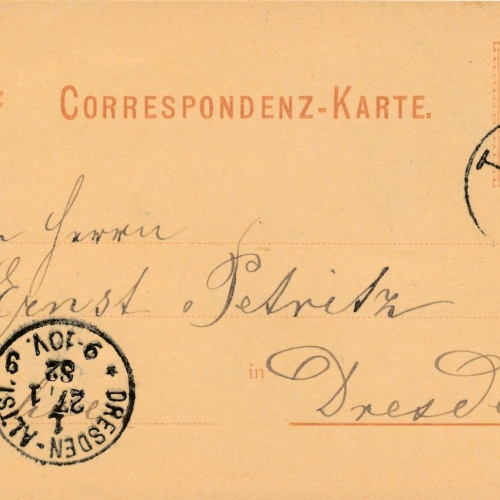 CORRESPONDENZ-KARTE.
Herrn
Ernst Petritz
in Dresde
DRESDEN-ALTST.
1
27.1
82
9-10V.
9